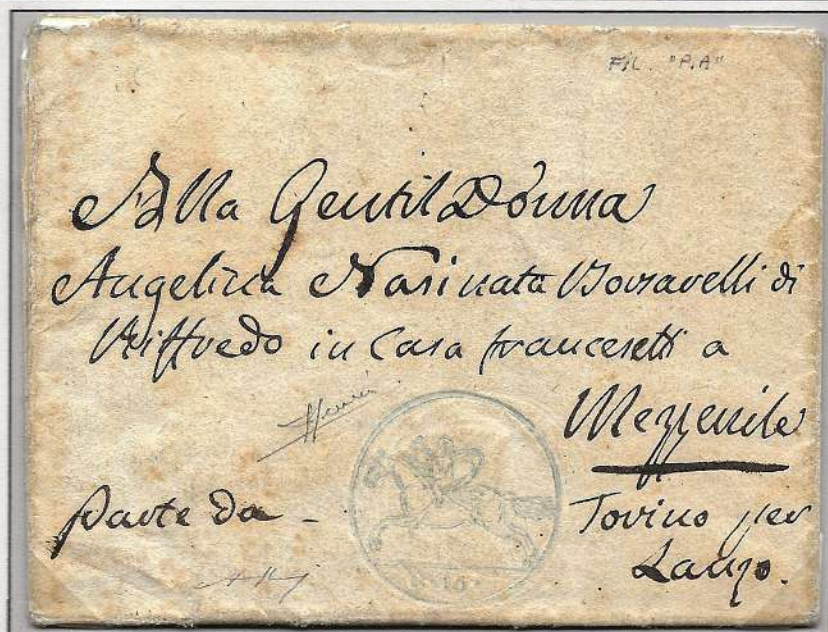 FIL. "P.A"
Alla Gentil Donna
Angelica Nasi nata Borsarelli di
Riffredo in Casa francesetti a
Mezzenile
Parte da - Torino per
Lanzo.